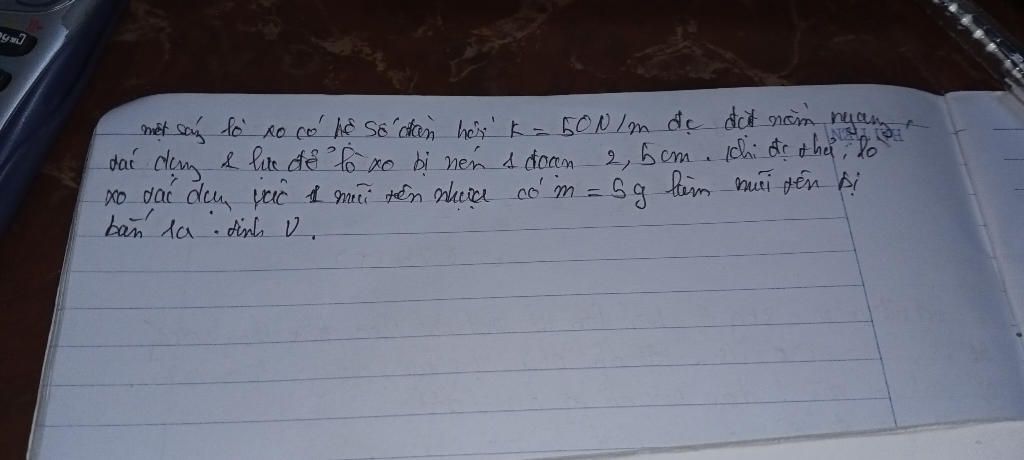 một súng lò xo có hệ số đàn hồi k = 50N/m đc đặt nằm ngang,
tác dụng 1 lực để lò xo bị nén 1 đoạn 2,5cm. Khi đc thả, lò
xo tác dụng vào 1 mũi tên nhựa có m = 5g làm mũi tên bị
bắn ra. tính V.